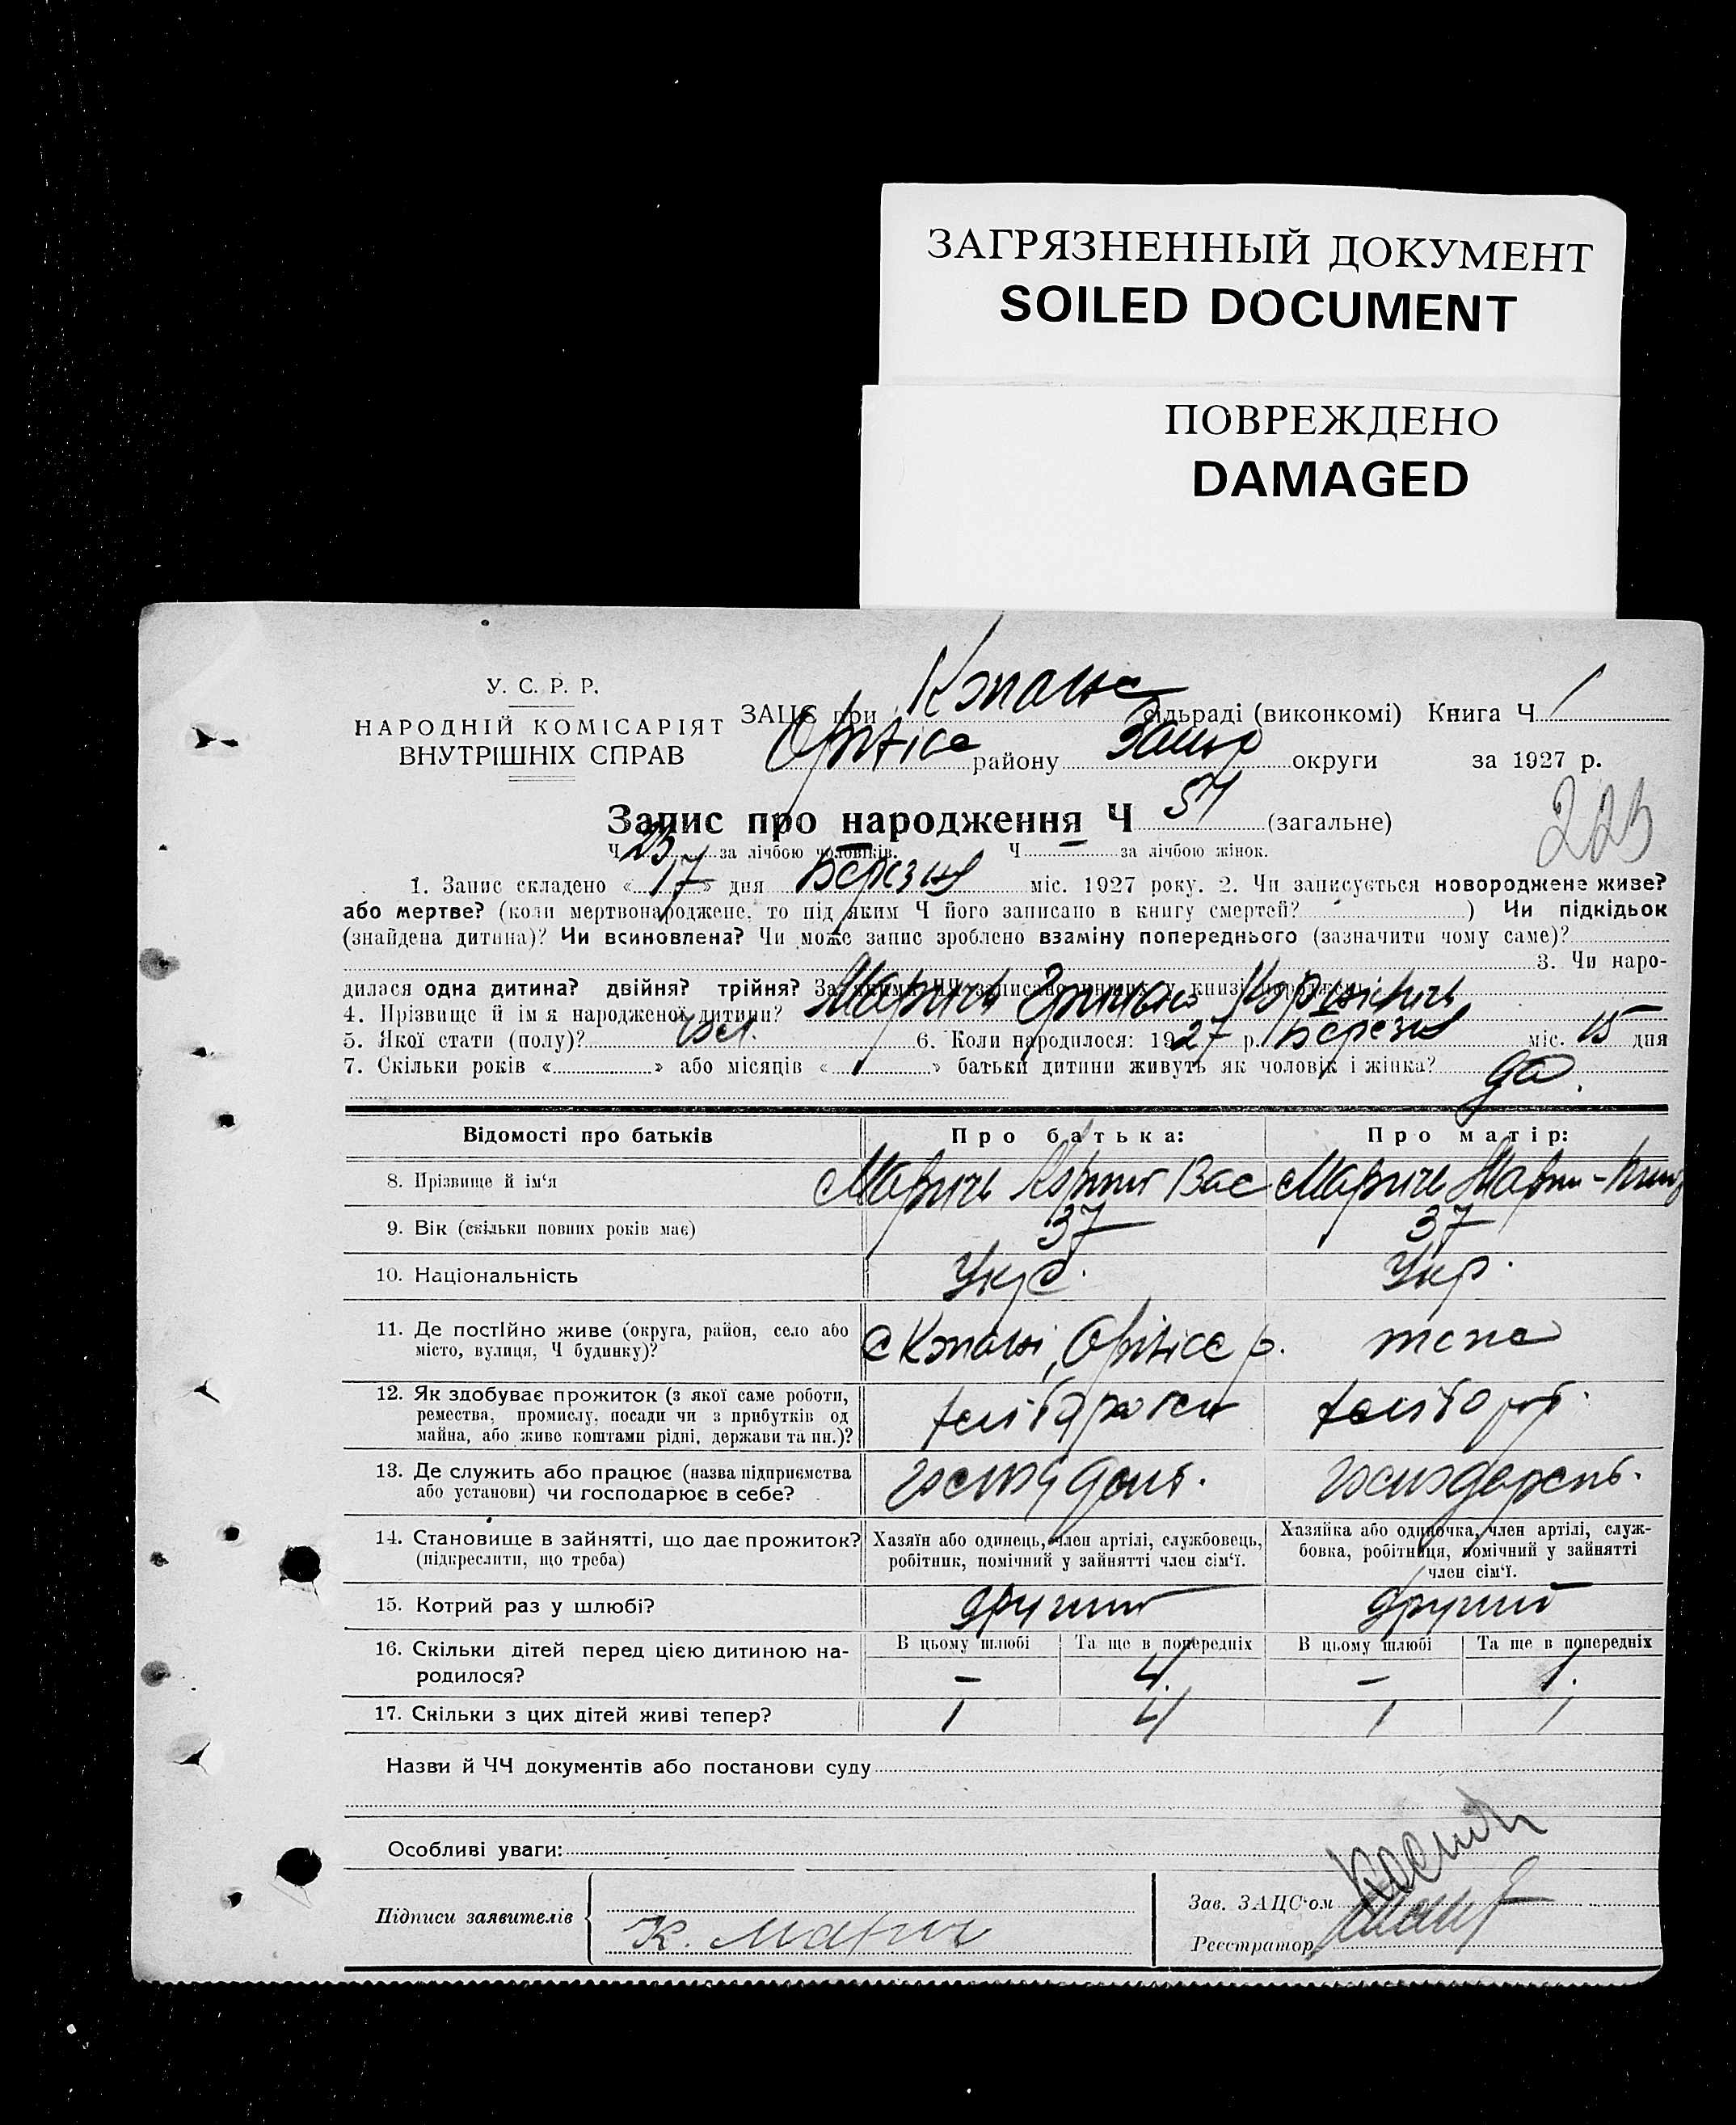 ЗАГРЯЗНЕННЫЙ ДОКУМЕНТ
SOILED DOCUMENT
ПОВРЕЖДЕНО
DAMAGED
У. С. Р. Р.
НАРОДНІЙ КОМІСАРІЯТ
ВНУТРІШНІХ СПРАВ
ЗАЦС при сільраді (виконкомі) Книга Ч 1
району округи за 1927 р.
Запис про народження Ч 51 (загальне)
223
Ч 23 за лічбою чоловіків. Ч — за лічбою жінок.
1. Запис складено «17» дня Березня міс. 1927 року. 2. Чи записується новороджене живе?
або мертве? (коли мертвонароджене, то під яким Ч його записано в книгу смертей? ) Чи підкідьок
(знайдена дитина)? Чи всиновлена? Чи може запис зроблено взаміну попереднього (зазначити чому саме)?
3. Чи наро-
дилася одна дитина? двійня? трійня? За якими ЧЧ записано инших у книзі народжень
4. Прізвище й ім'я народженої дитини? Марич
5. Якої стати (полу)? Чол. 6. Коли народилося: 1927 р. Березня міс. 15 дня
7. Скільки років « » або місяців « » батьки дитини живуть як чоловік і жінка? да.
Відомості про батьків
Про батька:
Про матір:
8. Прізвище й ім'я Марич Вас Марич
9. Вік (скільки повних років має) 37 37
10. Національність Укр. Укр.
11. Де постійно живе (округа, район, село або
місто, вулиця, Ч будинку)?
12. Як здобуває прожиток (з якої саме роботи,
ремества, промислу, посади чи з прибутків од
майна, або живе коштами рідні, держави та ин.)?
13. Де служить або працює (назва підприємства
або установи) чи господарює в себе?
14. Становище в зайнятті, що дає прожиток?
(підкреслити, що треба)
Хазяїн або одинець, член артілі, службовець,
робітник, помічний у зайнятті член сім'ї.
Хазяйка або одиночка, член артілі, служ-
бовка, робітниця, помічний у зайнятті
член сім'ї.
15. Котрий раз у шлюбі? другий другий
16. Скільки дітей перед цією дитиною на-
родилося?
В цьому шлюбі Та ще в попередніх В цьому шлюбі Та ще в попередніх
— 4. — 1.
17. Скільки з цих дітей живі тепер? 1 4 1 1
Назви й ЧЧ документів або постанови суду
Особливі уваги:
Підписи заявителів
К. Марич
Зав. ЗАЦС'ом
Реєстратор